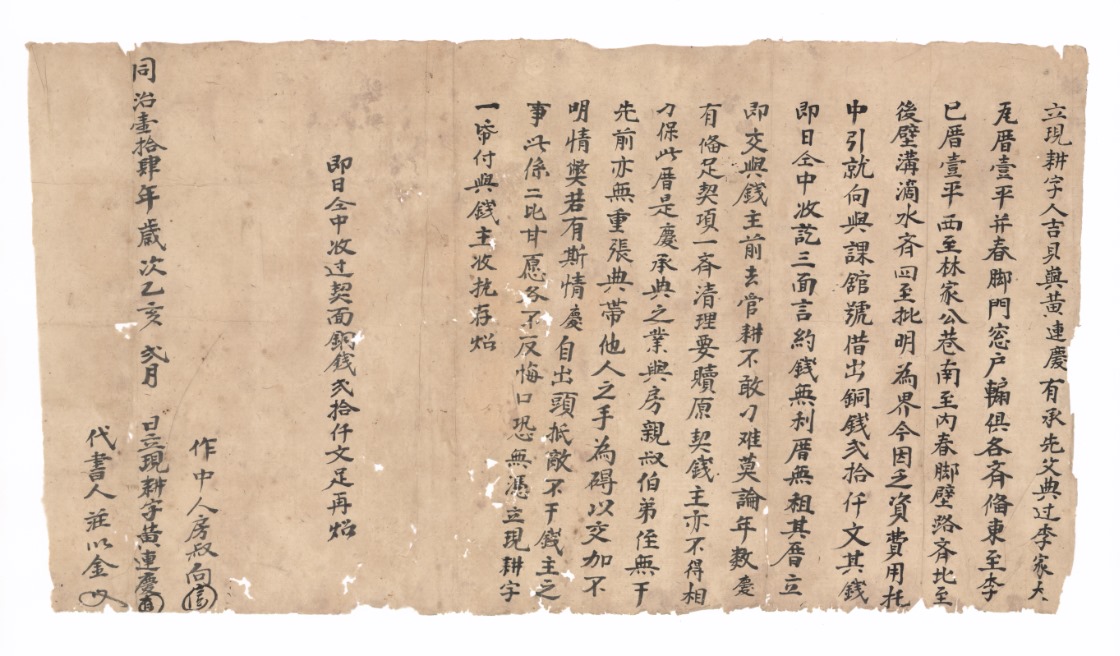 立現耕字人吉貝與黃連慶有承先父典过李家大
瓦厝壹平并春脚門窓户輛俱各斉俻東至李
已厝壹平西至林家公巷南至內春脚壁路斉北至
後壁溝滴水斉四至批明為界今因乏資費用托
中引就向與課舘號借出銅錢弍拾仟文其錢
即日仝中收訖三面言約錢無利厝無租其厝立
即交與錢主前去管耕不敢刁难莫論年数慶
有俻足契項一斉清理要贖原契錢主亦不得相
刁保此厝是慶承典之業與房親叔伯弟侄無干
先前亦無重張典帶他人之手為碍以交加不
明情獘若有斯情慶自出頭抵敵不干錢主之
事此係二比甘愿各不反悔口恐無憑立現耕字
一帋付與錢主收执存炤
即日仝中收过契面銅錢弍拾仟文足再炤
作中人房叔向
同治壹拾肆年歲次乙亥 弍月 日立現耕字黃連慶
代書人莊以金